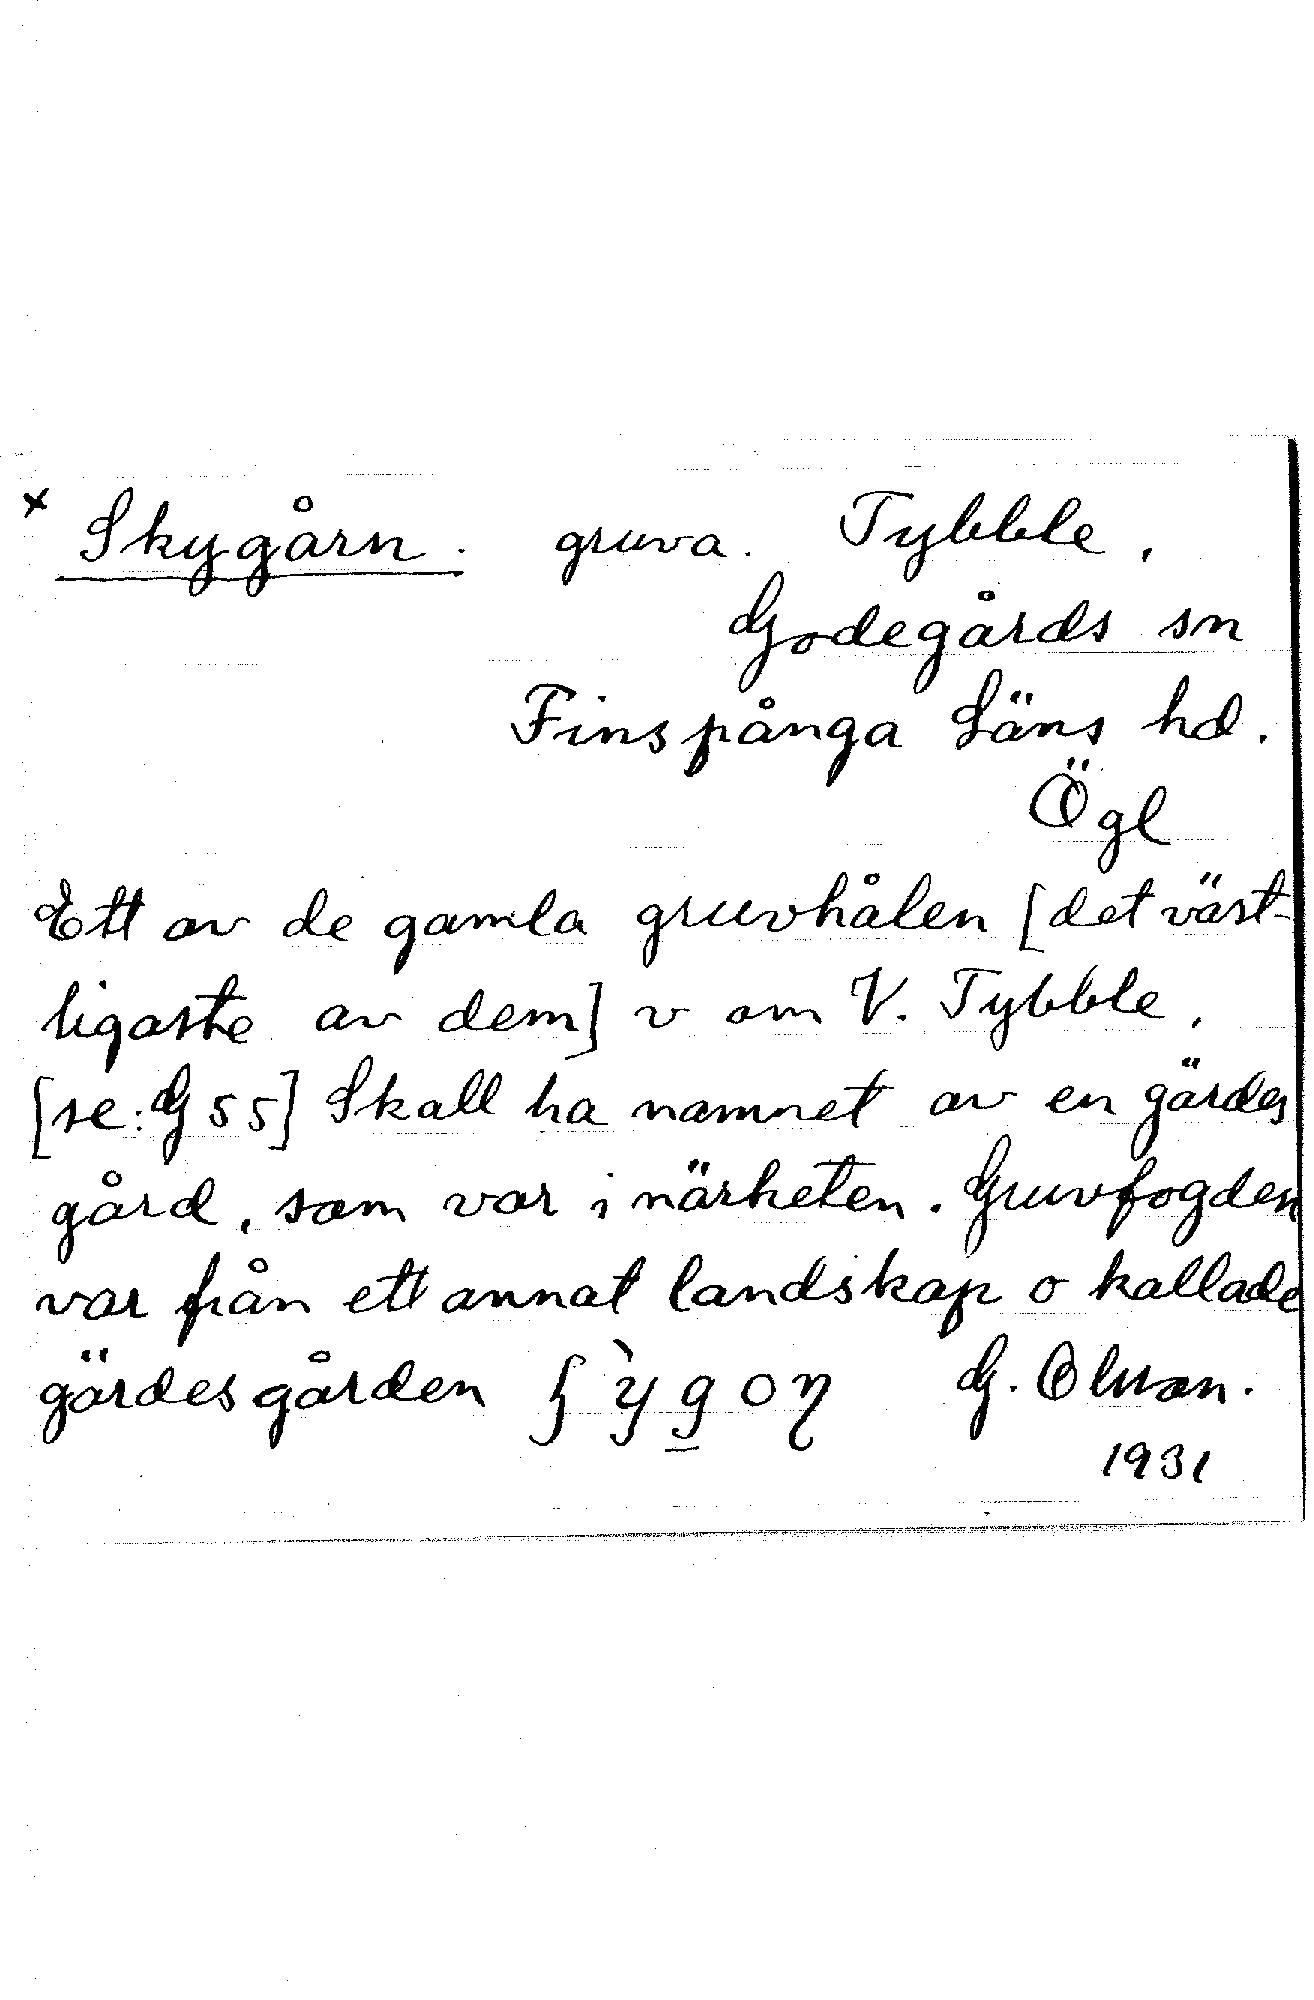 x Skygårn. gruva. Tybble,
Godegårds sn
Finspånga Läns hd.
Ögl
Ett av de gamla gruvhålen [det väst-
ligaste av dem] v om V. Tybble,
[se: G 55] Skall ha namnet av en gärdes
gård, som var i närheten. Gruvfogden
var från ett annat landskap o kallade
gärdesgården G. Olsson.
1931